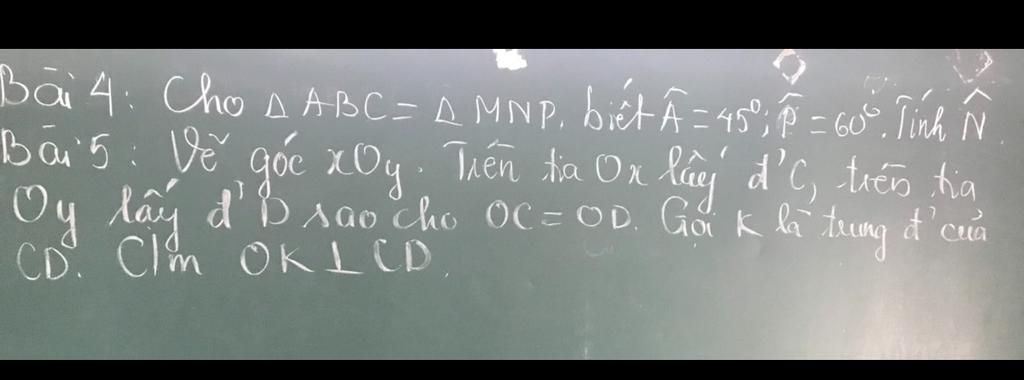 Bài 4: Cho Δ ABC = Δ MNP, biết Â = 45°; P̂ = 60°. Tính N̂.
Bài 5: Vẽ góc xOy. Trên tia Ox lấy đ' C, trên tia
Oy lấy đ' D sao cho OC = OD. Gọi K là trung đ' của
CD. C/m OK ⊥ CD.